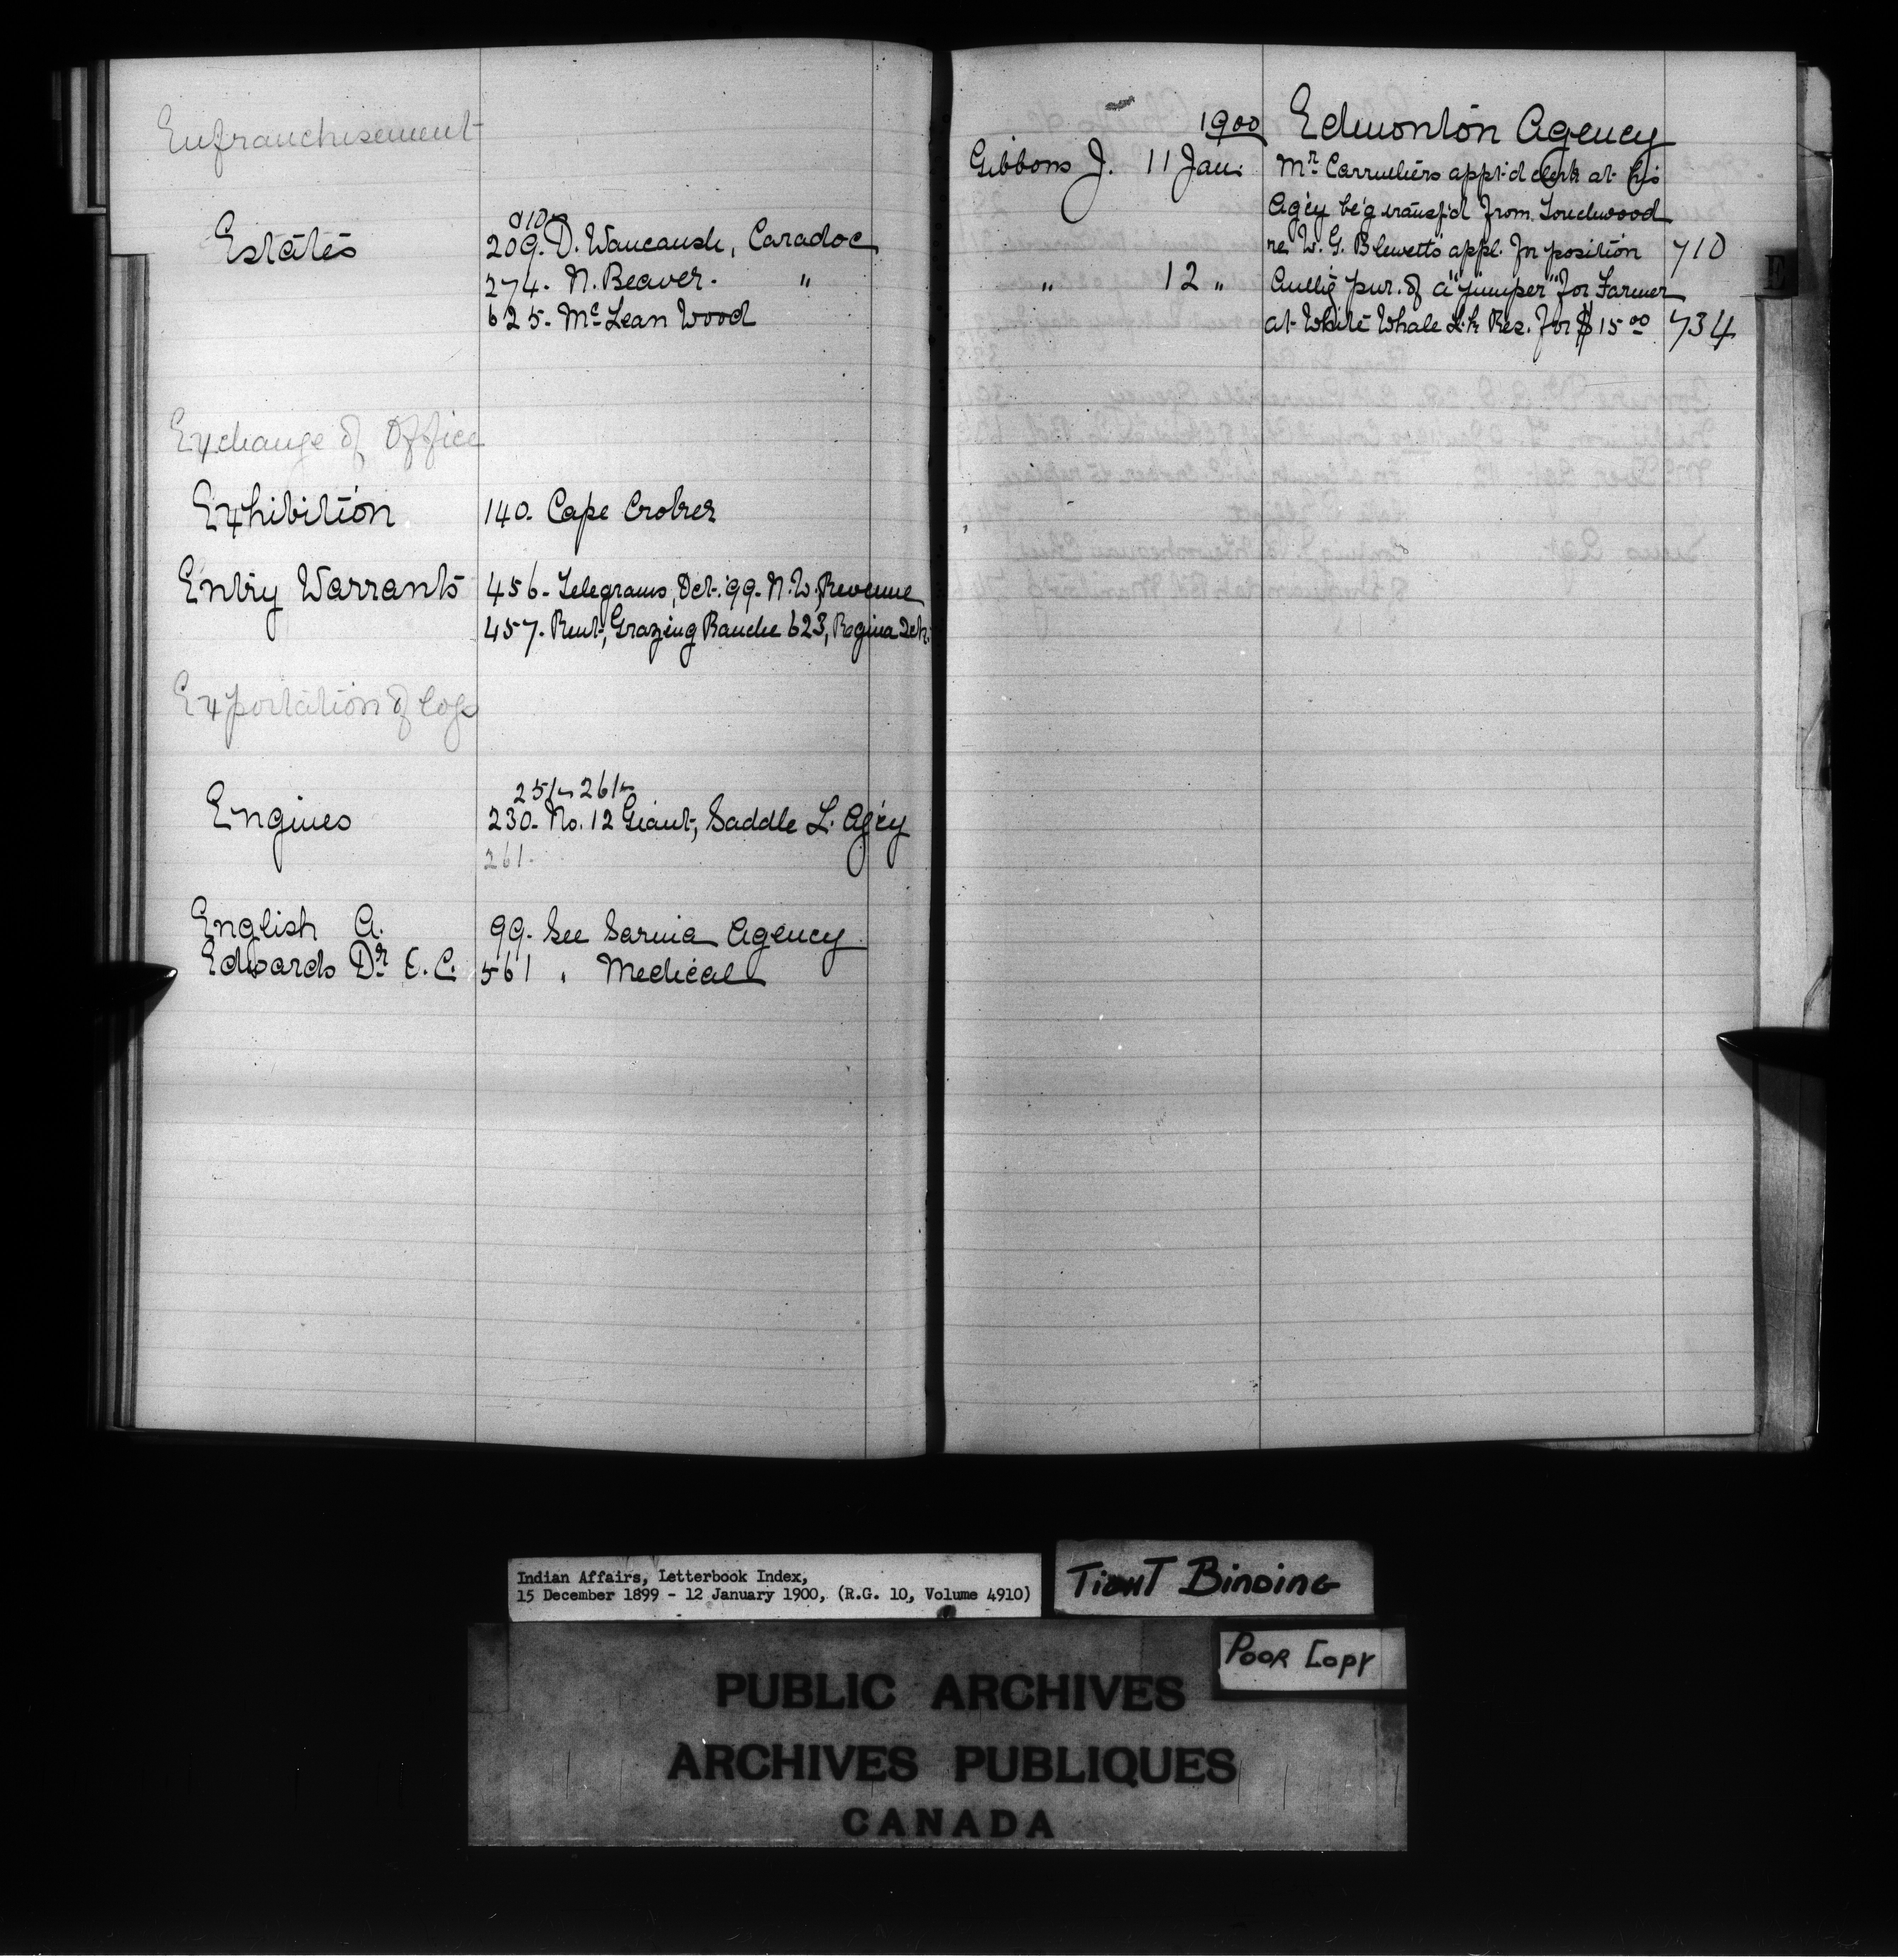 Enfranchisement
Estates
210
209. D. Waucaush, Caradoc
274. N. Beaver. "
625. Mc Lean Wood
Exchange of Office
Exhibition 140. Cape Croker
Entry Warrants 456. Telegrams, Oct. '99. N.W. Revenue
457. Rent, Grazing Ranche 623, Regina Oct.
Exportation of logs
251 261
Engines 230. No. 12 Giant, Saddle L. Ag'cy
261.
English A. 99. See Sarnia Agency
Edwards Dr. E. C. 561 " Medical
1900 Edmonton Agency
Gibbons J. 11 Jan. Mr. Carruthers appt'd clerk at his
Ag'cy be'g transf'd from Touchwood
re W. G. Blewett's appl. for position 710
" 12 " Auth'g pur. of a "jumper" for Farmer
at White Whale Lk Res. for $15 00 734
E
Indian Affairs, Letterbook Index,
15 December 1899 - 12 January 1900, (R.G. 10, Volume 4910)
TIGHT BINDING
POOR COPY
PUBLIC ARCHIVES
ARCHIVES PUBLIQUES
CANADA